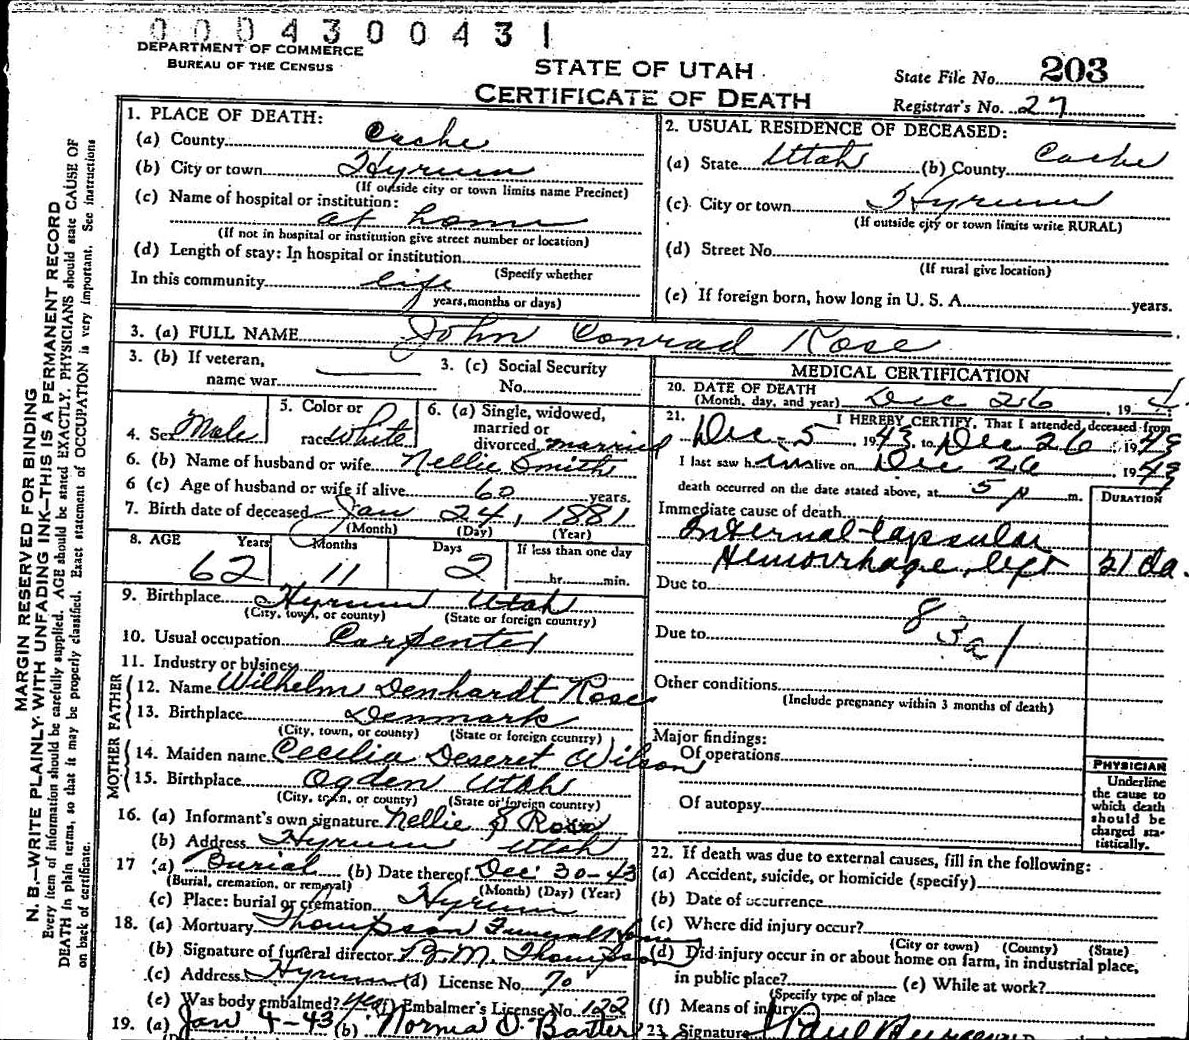 0004300431
DEPARTMENT OF COMMERCE
BUREAU OF THE CENSUS
STATE OF UTAH
CERTIFICATE OF DEATH
State File No. 203
Registrar's No. 27
MARGIN RESERVED FOR BINDING
N. B.—WRITE PLAINLY WITH UNFADING INK—THIS IS A PERMANENT RECORD
Every item of information should be carefully supplied. AGE should be stated EXACTLY. PHYSICIANS should state CAUSE OF
DEATH in plain terms, so that it may be properly classified. Exact statement of OCCUPATION is very important. See instructions
on back of certificate.
1. PLACE OF DEATH:
(a) County Cache
(b) City or town Hyrum
(If outside city or town limits name Precinct)
(c) Name of hospital or institution:
at home
(If not in hospital or institution give street number or location)
(d) Length of stay: In hospital or institution
(Specify whether
In this community life
years, months or days)
2. USUAL RESIDENCE OF DECEASED:
(a) State Utah (b) County Cache
(c) City or town Hyrum
(If outside city or town limits write RURAL)
(d) Street No.
(If rural give location)
(e) If foreign born, how long in U. S. A. years.
3. (a) FULL NAME John Conrad Rose
3. (b) If veteran,
name war
3. (c) Social Security
No.
4. Sex Male
5. Color or
race White
6. (a) Single, widowed,
married or
divorced married
6. (b) Name of husband or wife Nellie Smith
6 (c) Age of husband or wife if alive 60 years.
7. Birth date of deceased Jan 24, 1881
(Month) (Day) (Year)
8. AGE Years Months Days If less than one day
62 11 2 hr. min.
9. Birthplace Hyrum Utah
(City, town, or county) (State or foreign country)
10. Usual occupation Carpenter
11. Industry or business
FATHER
12. Name Wilhelm Denhardt Rose
13. Birthplace Denmark
(City, town, or county) (State or foreign country)
MOTHER
14. Maiden name Cecilia Deseret Wilson
15. Birthplace Ogden Utah
(City, town, or county) (State or foreign country)
16. (a) Informant's own signature Nellie S Rose
(b) Address Hyrum Utah
17 (a) Burial (b) Date thereof Dec 30-43
(Burial, cremation, or removal) (Month) (Day) (Year)
(c) Place: burial or cremation Hyrum
18. (a) Mortuary Thompson Funeral Home
(b) Signature of funeral director M. Thompson
(c) Address Hyrum (d) License No. 70
(e) Was body embalmed? yes (f) Embalmer's License No. 122
19. (a) Jan 4-43 (b) Norma O. Baxter
MEDICAL CERTIFICATION
20. DATE OF DEATH
(Month, day, and year) Dec 26, 194
21. I HEREBY CERTIFY, That I attended deceased from
Dec 5 1943, to Dec 26, 1943
I last saw him alive on Dec 26 1943
death occurred on the date stated above, at 5 p m.
DURATION
Immediate cause of death
Internal Capsular
Hemorrhage, left 21 da.
Due to
Due to
83a1
Other conditions
(Include pregnancy within 3 months of death)
Major findings:
Of operations
Of autopsy
PHYSICIAN
Underline
the cause to
which death
should be
charged sta-
tistically.
22. If death was due to external causes, fill in the following:
(a) Accident, suicide, or homicide (specify)
(b) Date of occurrence
(c) Where did injury occur?
(City or town) (County) (State)
(d) Did injury occur in or about home on farm, in industrial place,
in public place? (e) While at work?
(Specify type of place
(f) Means of injury
23 Signature Paul